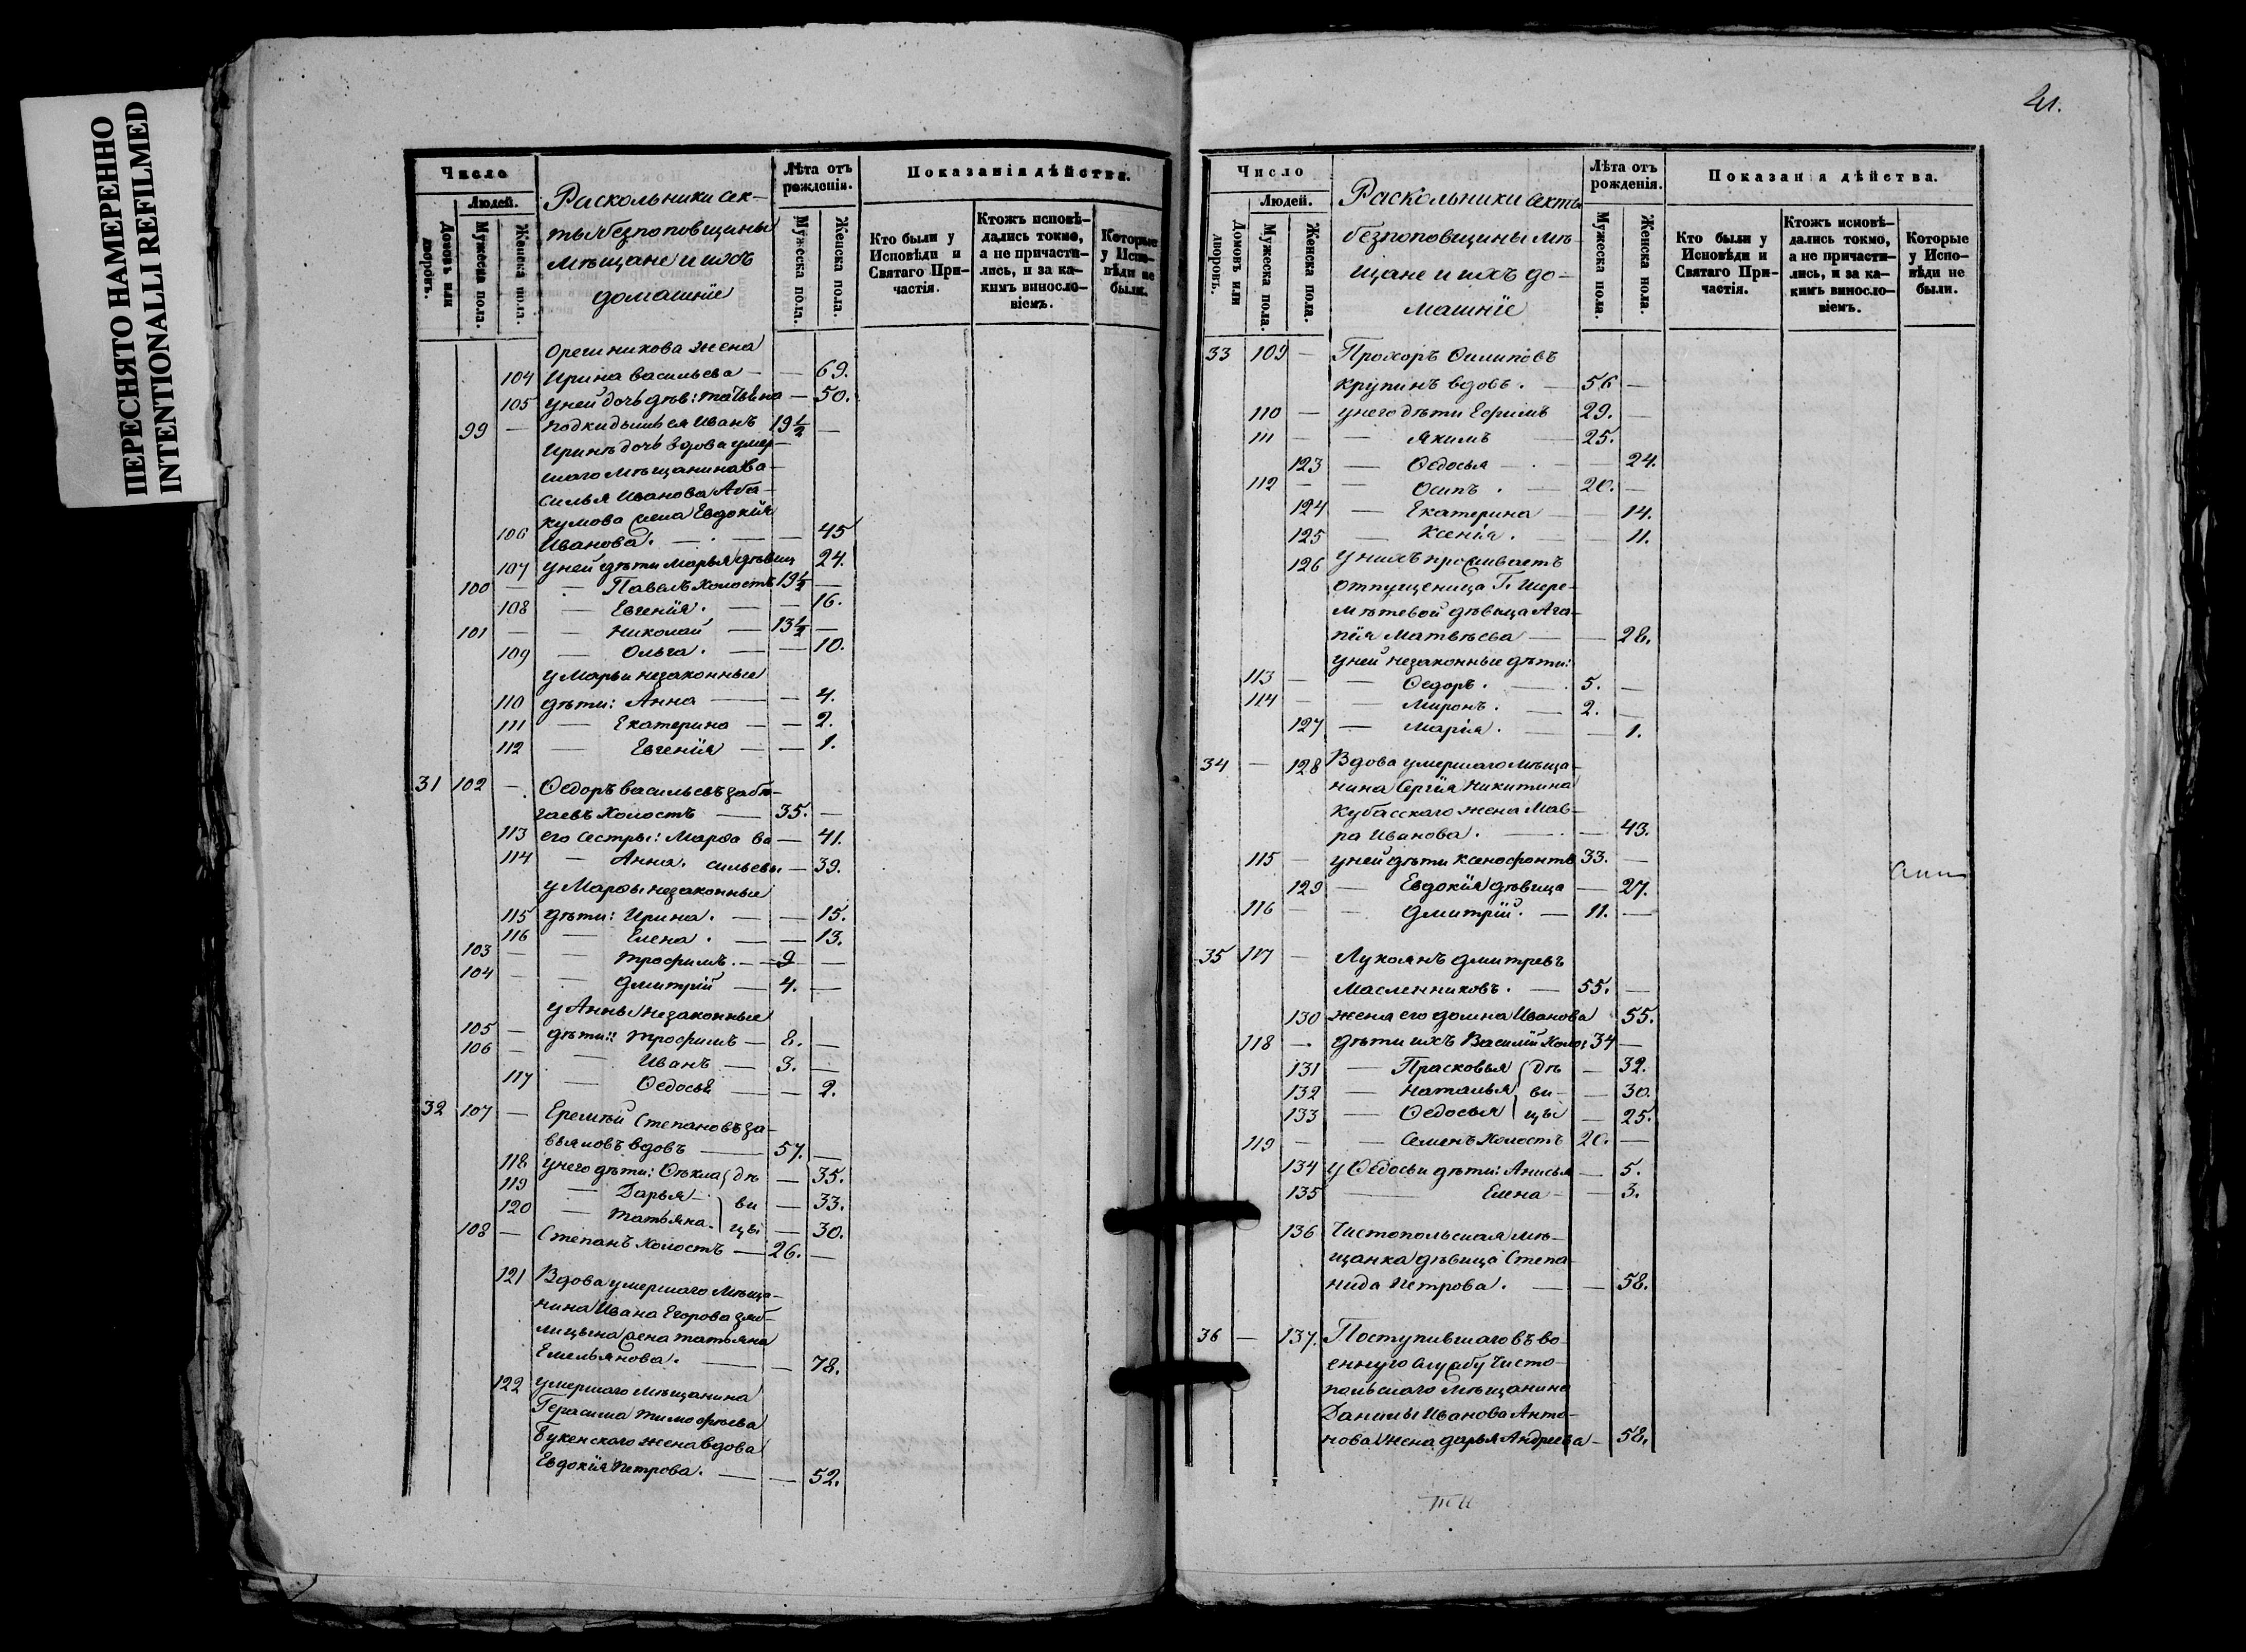 ПЕРЕСНЯТО НАМЕРЕННО
INTENTIONALLI REFILMED
Число
Людей.
Домовъ или дворовъ.
Мужеска пола.
Женска пола.
Раскольники сек-
ты безпоповщины
мѣщане и ихъ
домашніе
Лѣта отъ рожденія.
Мужеска пола.
Женска пола.
Показанія дѣйства.
Кто были у Исповѣди и Святаго При-частія.
Ктожъ исповѣ-дались токмо, а не причасти-лись, и за ка-кимъ винословіемъ.
Которые у Испо-вѣди не были.
Орешникова жена
104 Ирина Васильева — — 69.
105 у ней дочь дѣв: Татьяна — 50.
99 — подкидышъ ея Иванъ 19½ —
Иринѣ дочь вдова умер-
шаго мѣщанина Ва-
силья Иванова Аба-
кумова жена Евдокія
106 Иванова. — — 45
107 у ней дѣти Марья дѣвиц 24.
100 — — Павелъ холостъ 19½ —
108 — Евгенія. — — 16.
101 — — Николай — 13½ —
109 — Ольга. — — 10.
у Марьи незаконные
110 дѣти: Анна — — 4.
111 — Екатерина — — 2.
112 — Евгенія — — 1.
31 102 — Ѳедоръ Васильевъ Забѣ-
гаевъ холостъ — 35. —
113 его сестры: Марѳа Ва — 41.
114 — Анна. сильевы — 39.
у Марѳы незаконные
115 дѣти: Ирина. — — 15.
116 — Елена. — — 13.
103 — — Трофимъ. — 9 —
104 — — Дмитрій — 4. —
у Анны незаконные
105 — дѣти: Трофимъ — 8. —
106 — — Иванъ — 3. —
117 — Ѳедосья — — 2.
32 107 — Еремѣй Степановъ За-
вьяловъ вдовъ — 57. —
118 у него дѣти: Ѳекла дѣ — 35.
119 — Дарья — ви — 33.
120 — Татьяна. цы — 30.
108 — Степанъ холостъ — 26. —
121 Вдова умершаго мѣща-
нина Ивана Егорова
жена Татьяна
Емельянова. — — 78.
122 умершаго мѣщанина
Герасима Тимофѣева
Букенского жена вдова
Евдокія Петрова. — — 52.
21.
Число
Людей.
Домовъ или дворовъ.
Мужеска пола.
Женска пола.
Раскольники секты
безпоповщины мѣ-
щане и ихъ до-
машніе
Лѣта отъ рожденія.
Мужеска пола.
Женска пола.
Показанія дѣйства.
Кто были у Исповѣди и Святаго При-частія.
Ктожъ исповѣ-дались токмо, а не причасти-лись, и за ка-кимъ винословіемъ.
Которые у Испо-вѣди не были.
33 109 — Прохоръ Филиповъ
Крупинъ вдовъ. — 56 —
110 — у него дѣти Ефимъ 29. —
111 — — Якимъ — 25.
123 — Ѳедосья — — 24.
112 — — Осипъ. — 20. —
124 — Екатерина — — 14.
125 — Ксенія. — — 11.
126 у нихъ проживаетъ
отпущеница Г. Шере-
мѣтевой дѣвица Ага-
пія Матвѣева — — 28.
у ней незаконные дѣти:
113 — — Ѳедоръ. — 5. —
114 — — Миронъ. — 2. —
127 — Марія. — — 1.
34 — 128 Вдова умершаго мѣща-
нина Сергія Никитина
Кубасскаго жена Мав-
ра Иванова. — — 43.
115 — у ней дѣти Ксенофонтъ 33. —
129 — Евдокія дѣвица — 27.
116 — — Дмитрій. — 11. —
35 117 — Лукоянъ Дмитревъ
Масленниковъ. — 55. —
130 жена его Домна Иванова 55.
118 — дѣти ихъ Василій холо: 34 —
131 — Прасковья дѣ — 32.
132 — Наталья ви — 30.
133 — Ѳедосья цы — 25.
119 — — Семенъ холостъ 20. —
134 у Ѳедосьи дѣти: Анисья — 5.
135 — Елена — — 3.
136 Чистопольская мѣ-
щанка дѣвица Степа-
нида Петрова. — — 58.
36 — 137. Поступившаго въ во-
енную службу Чисто-
польскаго мѣщанина
Данилы Иванова Анто-
нова жена Дарья Андреева — 58.